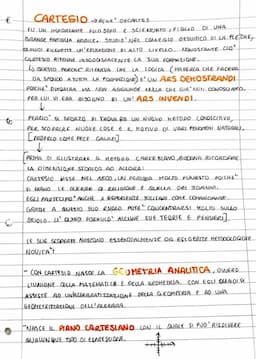 CARTESIO → RENE' DECARTES
FU UN IMPORTANTE FILOSOFO E SCIENZIATO, FIGLIO DI UNA
GRANDE FAMIGLIA NOBILE. STUDIO' NEL COLLEGIO GESUITICO DI LA FLECHE,
QUINDI RICEVETTE UN'EDUCAZIONE DI ALTO LIVELLO. NONOSTANTE CIO'
CARTESIO RITENNE INSODDISFACENTE LA SUA FORMAZIONE.
↳ QUESTO PERCHE' RITENEVA CHE LA LOGICA (MATERIA CHE FACEVA
DA SFONDO A TUTTA LA FORMAZIONE) E' UN ARS DEMOSTRANDI
POICHE' DIMOSTRA MA NON AGGIUNGE NULLA CHE GIA' NON CONOSCIAMO.
PER LUI VI ERA BISOGNO DI UN' ARS INVENDI.
PERCIO' SI SFORZO' DI TROVARE UN NUOVO METODO CONOSCITIVO,
PER SCOPRIRE NUOVE COSE E IL MOTIVO DI VARI FENOMENI NATURALI,
[PROPRIO COME FECE GALILEI]
[PRIMA DI ILLUSTRARE IL METODO CARTESIANO, BISOGNA RICORDARE
LA DIMENSIONE STORICA AD ALCUNI
CARTESIO VISSE NEL 1600, UN PERIODO MOLTO FUNESTO POICHE'
VI FURONO LE GUERRE DI RELIGIONE E QUELLA DEI 30ANNI.
EGLI PARTECIPO' ANCHE A
GRAZIE A QUESTO SUO RUOLO POTE' CONCENTRARSI MOLTO SULLO
STUDIO. E' QUINDI FORMULO' ALCUNE SUE TEORIE E PENSIERI].
LE SUE SCOPERTE NASCONO ESSENZIALMENTE DA ESIGENZE METODOLOGICHE
NOVITA':
- CON CARTESIO NASCE LA GEOMETRIA ANALITICA, OVVERO
L'UNIONE DELLA MATEMATICA E DELLA GEOMETRIA. CON EGLI QUINDI SI
ASSISTE AD UN'ALGEBRIZZAZIONE DELLA GEOMETRIA E AD UNA
GEOMETRIZZAZIONE DELL'ALGEBRA.
- NASCE IL PIANO CARTESIANO CON IL QUALE SI PUO' RISOLVERE
QUALUNQUE TIPO DI